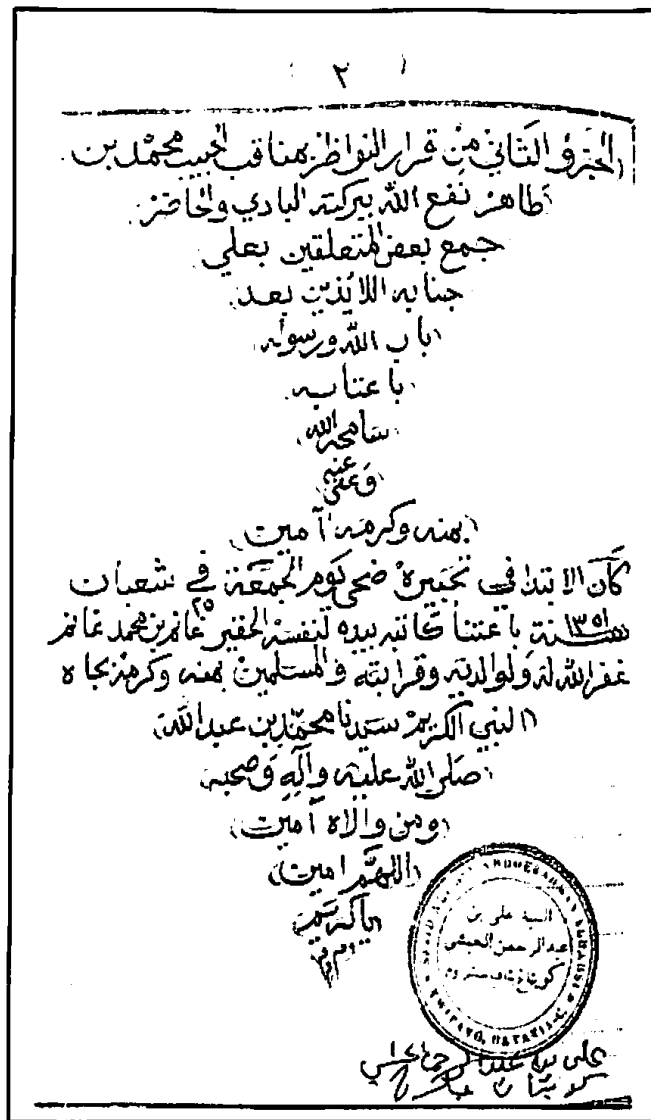 ٢
الجزؤ الثاني من قرار النواظر بمناقب الحبيب محمد بن
طاهر نفع الله ببركته البادي والحاضر
جمع بعض المتعلقين بعلي
جنابه اللائذين بعد
باب الله ورسوله
باعتابه
سامحه الله
وعفى عنه
بمنه وكرمه آمين
كان الابتدا في تحبيره ضحى يوم الجمعة في شعبان
سنة ١٣٥١ باعتنا كاتبه بيده لنفسه الحقير غانم بن محمد غانم
غفر الله له ولوالديه وقرابته والمسلمين بمنه وكرمه بجاه
النبي الكريم سيدنا محمد بن عبد الله
صلى الله عليه وآله وصحبه
ومن والاه آمين
اللهم امين
يا كريم
السيد علي بن
عبدالرحمن الحبشي
كويتاغ
KWITANG, BATAVIA-C
علي بن عبد الرحمن الحبشي